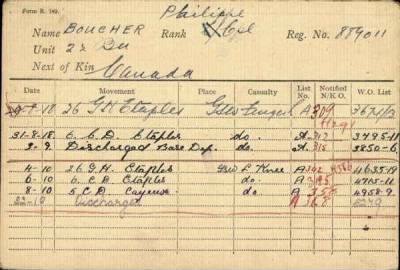 Form R. 149.
Philippe
Name BOUCHER Rank L/Cpl Reg. No. 889011
Unit 22 Bn
Next of Kin Canada
Date Movement Place Casualty List No. Notified N/K O. W.O. List
-18 26 G.H. Etaples GSW A309
31-8-18. 6. C. D. Etaples do. A. 312 3795-11
2. 9. Discharged Base Dep. do. A. 315 3850-6
4-10 26 G.H. Etaples GSW L. Knee A342 4635-19
6-10 6. C.D. Etaples do. A345 4715-11
8-10 5 C.D. Cayeux do. A 4958-9
22-10 Discharged A 368 5279